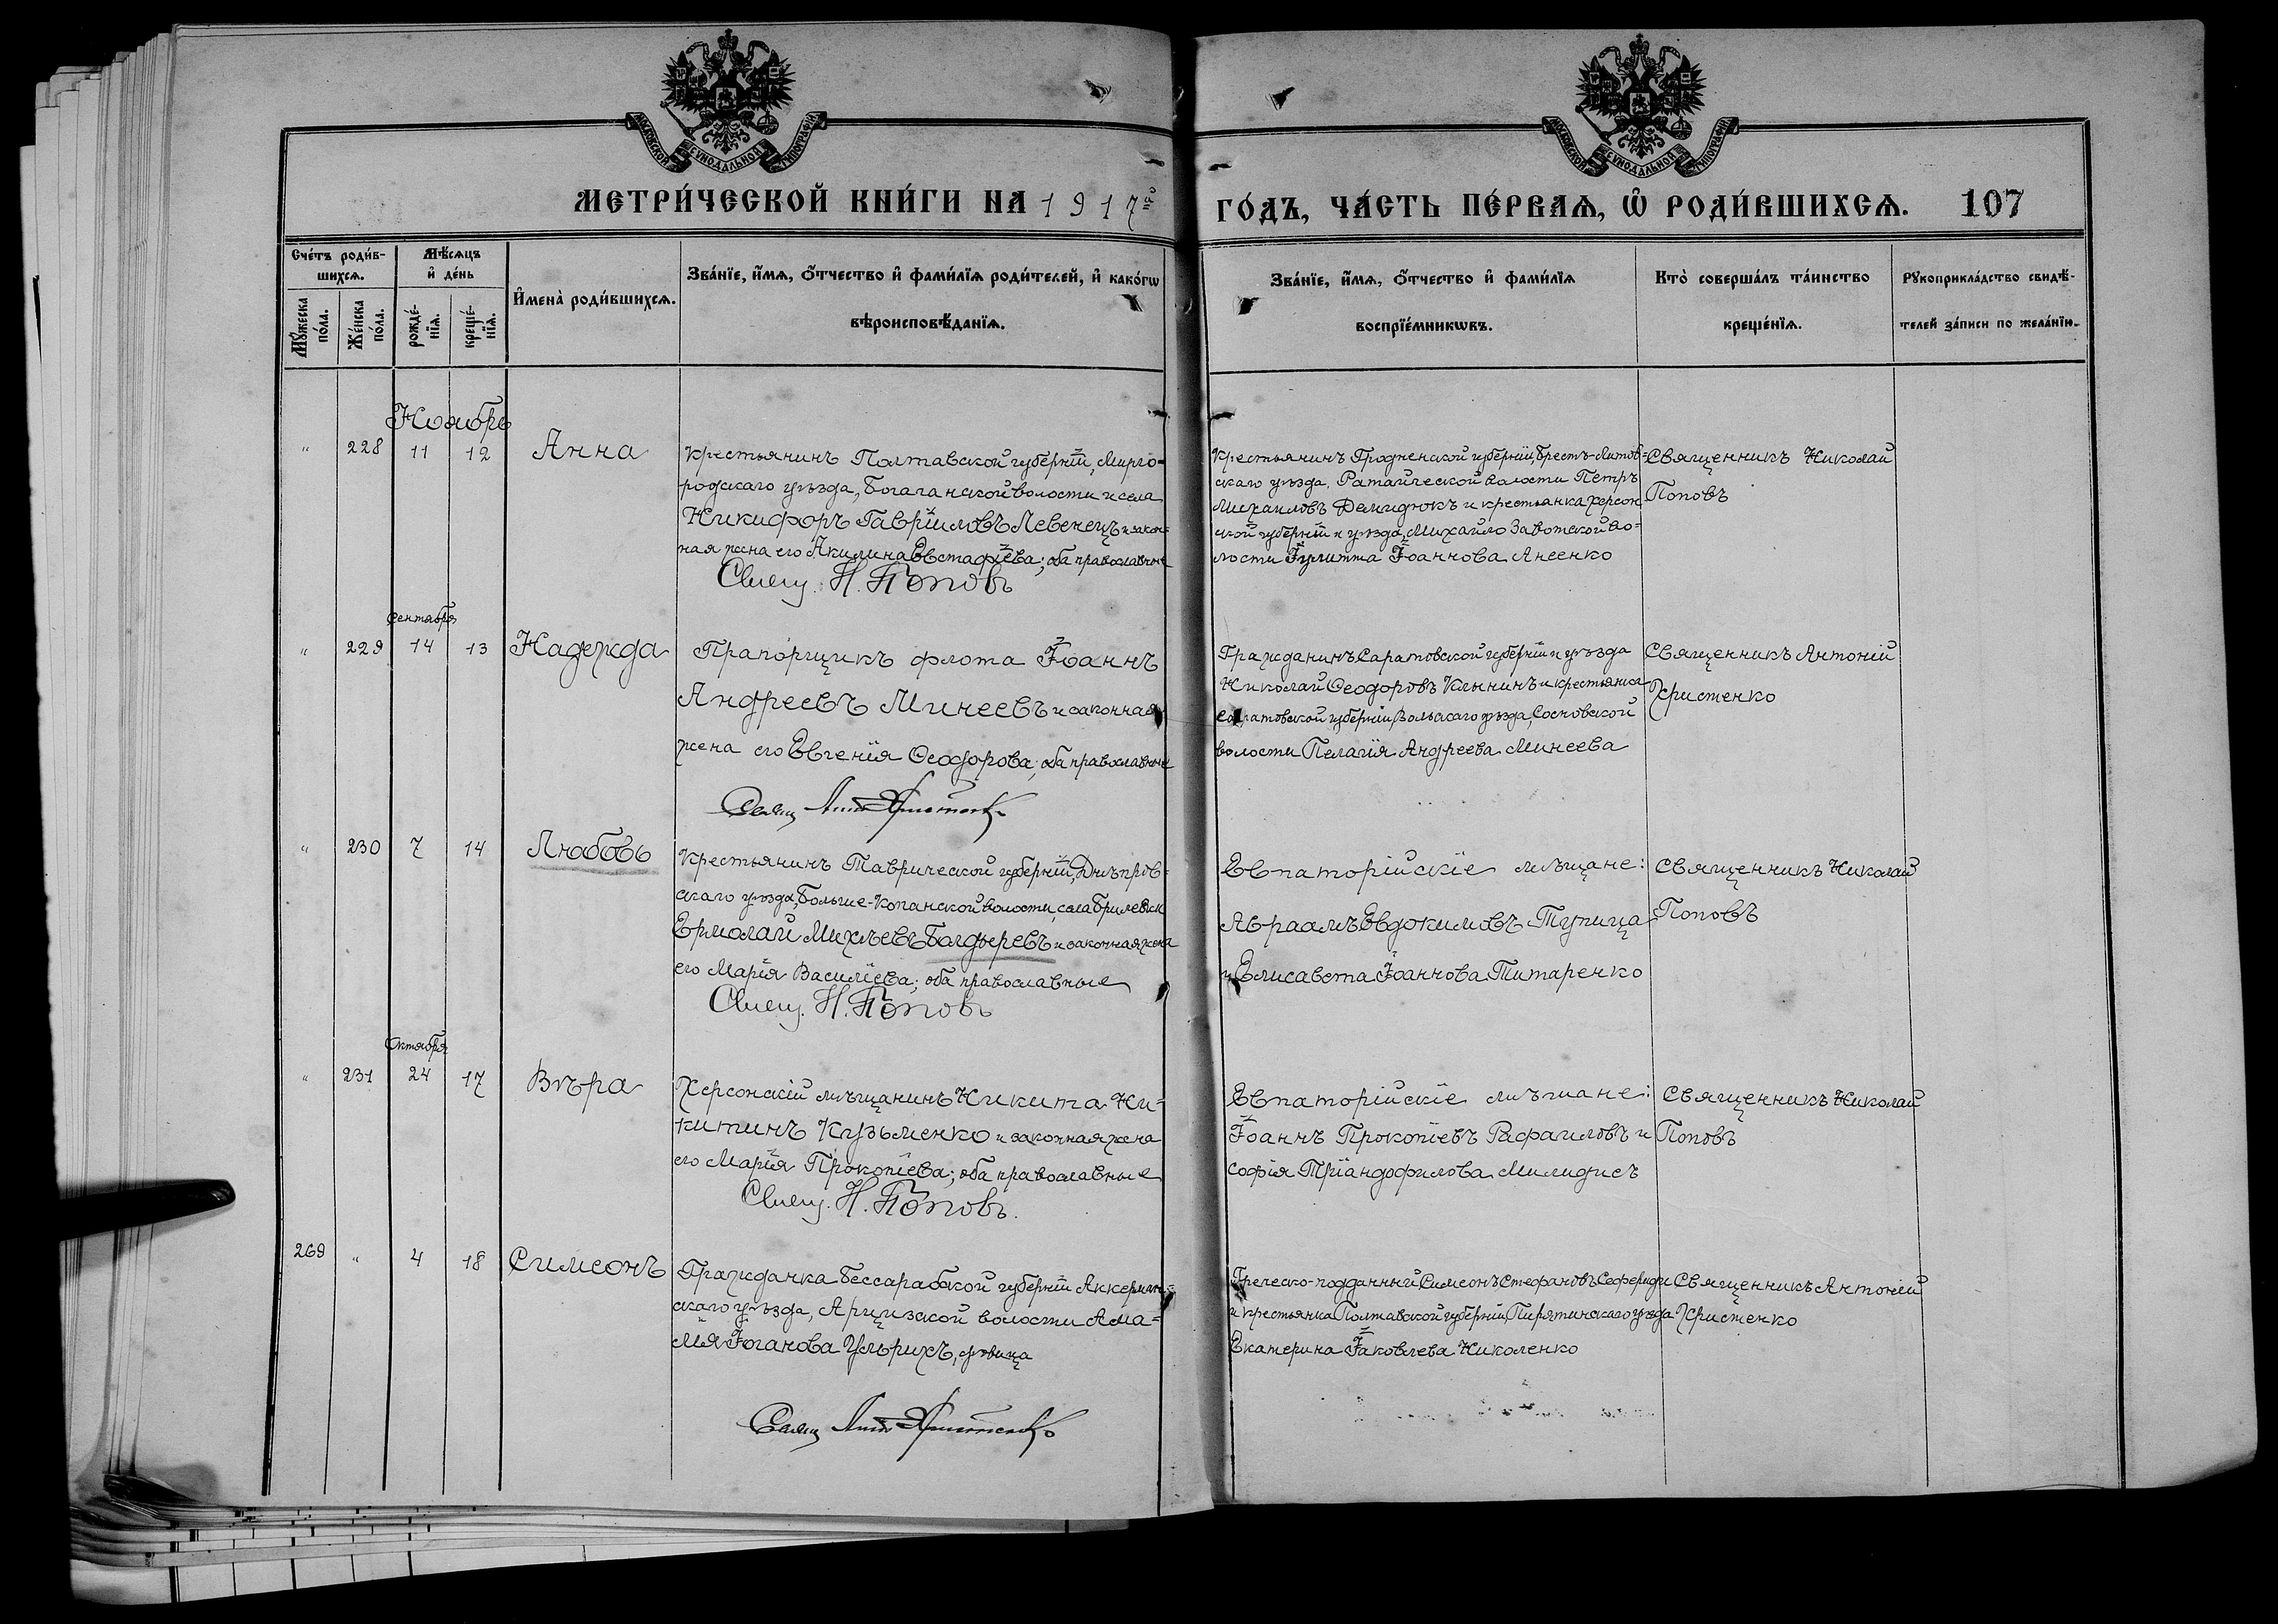 МОСКОВСКОЙ СѴНОДАЛЬНОЙ ТИПОГРАФІИ
МОСКОВСКОЙ СѴНОДАЛЬНОЙ ТИПОГРАФІИ
МЕТРИ́ЧЕСКОЙ КНИ́ГИ НА 1917й ГО́ДЪ, ЧА́СТЬ ПЕ́РВАѦ, Ѡ РОДИ́ВШИХСѦ. 107
Сче́тъ роди́в-
шихсѧ.
Мꙋ́жеска
по́ла.
Же́нска
по́ла.
Мѣ́сѧцъ
и҆ де́нь
рожде́-
нїѧ.
креще́-
нїѧ.
И҆мена̀ роди́вшихсѧ.
Зва́нїе, и҆́мѧ, ѻ҆́тчество и҆ фами́лїѧ роди́телей, и҆ како́гѡ
вѣроисповѣ́данїѧ.
Зва́нїе, и҆́мѧ, ѻ҆́тчество и҆ фами́лїѧ
воспрїе́мникѡвъ.
Кто̀ соверша́лъ та́инство
креще́нїѧ.
Рꙋкоприкла́дство свидѣ́-
телей за́писи по жела́нїю.
Ноябрь
" 228 11 12 Анна
Крестьянинъ Полтавской губерніи, Мирго=
родскаго уѣзда, Богачанской волости и села
Никифоръ Гавріиловъ Левенецъ и закон=
ная жена его Акилина Евстафіева; оба православные
Свящ. Н. Поповъ
Крестьянинъ Гродненской губерніи, Брестъ-Литов=
скаго уѣзда, Ратайческой волости Петръ
Михаиловъ Демидюкъ и крестьянка Херсон
ской губерніи и уѣзда, Михайло Завотской во=
лости Іулитта Іоаннова Анеенко
Священникъ Николай
Поповъ
Сентября
" 229 14 13 Надежда
Прапорщикъ флота Іоаннъ
Андреевъ Минеевъ и законная
жена его Евгенія Ѳеодорова; оба православные
Свящ Ант Христенко
Гражданинъ Саратовской губерніи и уѣзда
Николай Ѳеодоровъ Клынинъ и крестьянка
Саратовской губерніи, Вольскаго уѣзда, Сосновской
волости Пелагія Андреева Минеева
Священникъ Антоній
Христенко
" 230 7 14 Любовь
Крестьянинъ Таврической губерніи, Днѣпров=
скаго уѣзда, Больше-Копанской волости, села Брилевки
Ермолай Михѣевъ Болдыревъ и законная жена
его Марія Василіева; оба православные
Свящ. Н. Поповъ
Евпаторійскіе мѣщане:
Авраамъ Евдокимовъ Тупица
и Елисавета Іоаннова Титаренко
Священникъ Николай
Поповъ
Октября
" 231 24 17 Вѣра
Херсонскій мѣщанинъ Никита Ни=
китинъ Кузьменко и законная жена
его Марія Прокопіева; оба православные
Свящ. Н. Поповъ.
Евпаторійскіе мѣщане:
Іоаннъ Прокопіевъ Рафаиловъ и
Софія Тріандофилова Милидисъ
Священникъ Николай
Поповъ
269 " 4 18 Симеонъ
Гражданка Бессарабской губерніи Аккерман=
скаго уѣзда, Арцизской волости Ама=
лія Іоганова Ульрихъ, дѣвица
Свящ Ант Христенко
Греческо-подданный Симеонъ Стефановъ Сефериди
и крестьянка Полтавской губерніи, Пирятинскаго уѣзда
Екатерина Іаковлева Николенко
Священникъ Антоній
Христенко